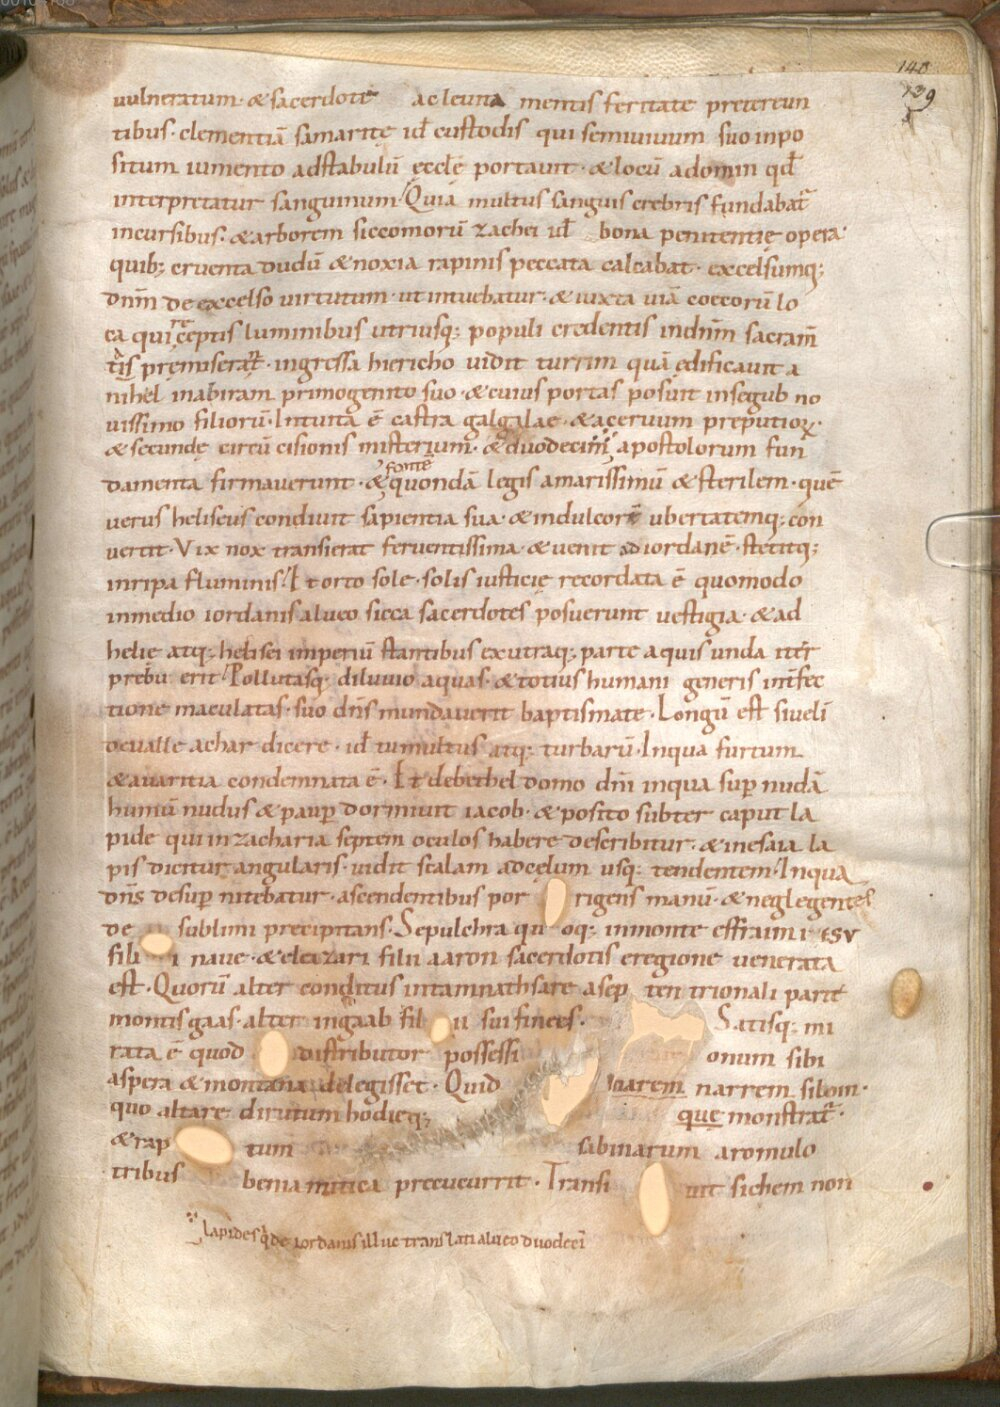 140
139
uulneratum · & sacerdotē ac leuita mentis feritate pretereun
tibus · clementiā samaritę id̄ custodis qui semiuiuum suo inpo
situm iumento ad stabulū ęcclę portauit · & locū adomin qd̄
interpretatur sanguinum · Quia multus sanguis crebris fundabat̄
incursibus · & arborem siccomorū zachei id̄ bona penitentię opera ·
quib; cruenta dudū & noxia rapinis peccata calcabat · excelsumq;
dnm̄ de excelso uirtutum · ut intuebatur · & iuxta uiā coecorū lo
ca qui receptis luminibus utriusq; populi credentis in dnm̄ sacram̄
tis pręmiserat · ingressa hiericho uidit turrim quā ędificauit a
nihel in abiram primogenito suo · & cuius portas posuit in segub no
uissimo filiorū · Intuita ē castra galgalae · & aceruum preputior̄ ·
& secundę circū cisionis misterium · & duodecim apostolorum fun
fontē
damenta firmauerunt · & quondā legis amarissimū & sterilem · quē
uerus heliseus condiuit sapientia sua · & indulcorē ubertatemq; con
uertit · Vix nox transierat feruentissima · & uenit ad iordanē · stetitq;
in ripa fluminis / Et orto sole · solis iusticię recordata ē quomodo
in medio iordanis alueo sicca sacerdotes posuerunt uestigia · & ad
helie atq; helisei imperiū stantibus ex utraq; parte aquis unda iter
prebu erit / Pollutasq; diluuio aquas · & totius humani generis int̄fec
tione maculatas · suo dns̄ mundauerit baptismate · Longū est si uelī
de ualle achar dicere · id̄ tumultus atq; turbarū · In qua furtum
& auaritia condemnata ē · Et de bethel domo dnī in qua sup̄ nudā
humū nudus & paup̄ dormiuit iacob · & posito subter caput la
pide qui in zacharia septem oculos habere describitur · & in esaia la
pis dicitur angularis · uidit scalam ad cęlum usq; tendentem · In qua
dns̄ desup̄ nitebatur · ascendentibus por rigens manū · & neglegentes
de sublimi precipitans · Sepulchra qu oq; in monte effraim iesv
fili i naue · & eleazari filii aaron sacerdotis e regione uenerata
est · Quorū alter conditus in tamnathsare a sep ten trionali parte
montis gaas · alter in gaab fil ii sui finees · Satisq; mi
rata ē quod distributor possessi onum sibi
aspera & montana delegisset · Quid narem narrem silom ·
quo altare dirutum hodieq; que monstrat̄ ·
& rap tum sabinarum a romulo
tribus beniamitica precucurrit · Transi uit sichem non
lapidesq; de iordanis illuc translati alueo duodecī